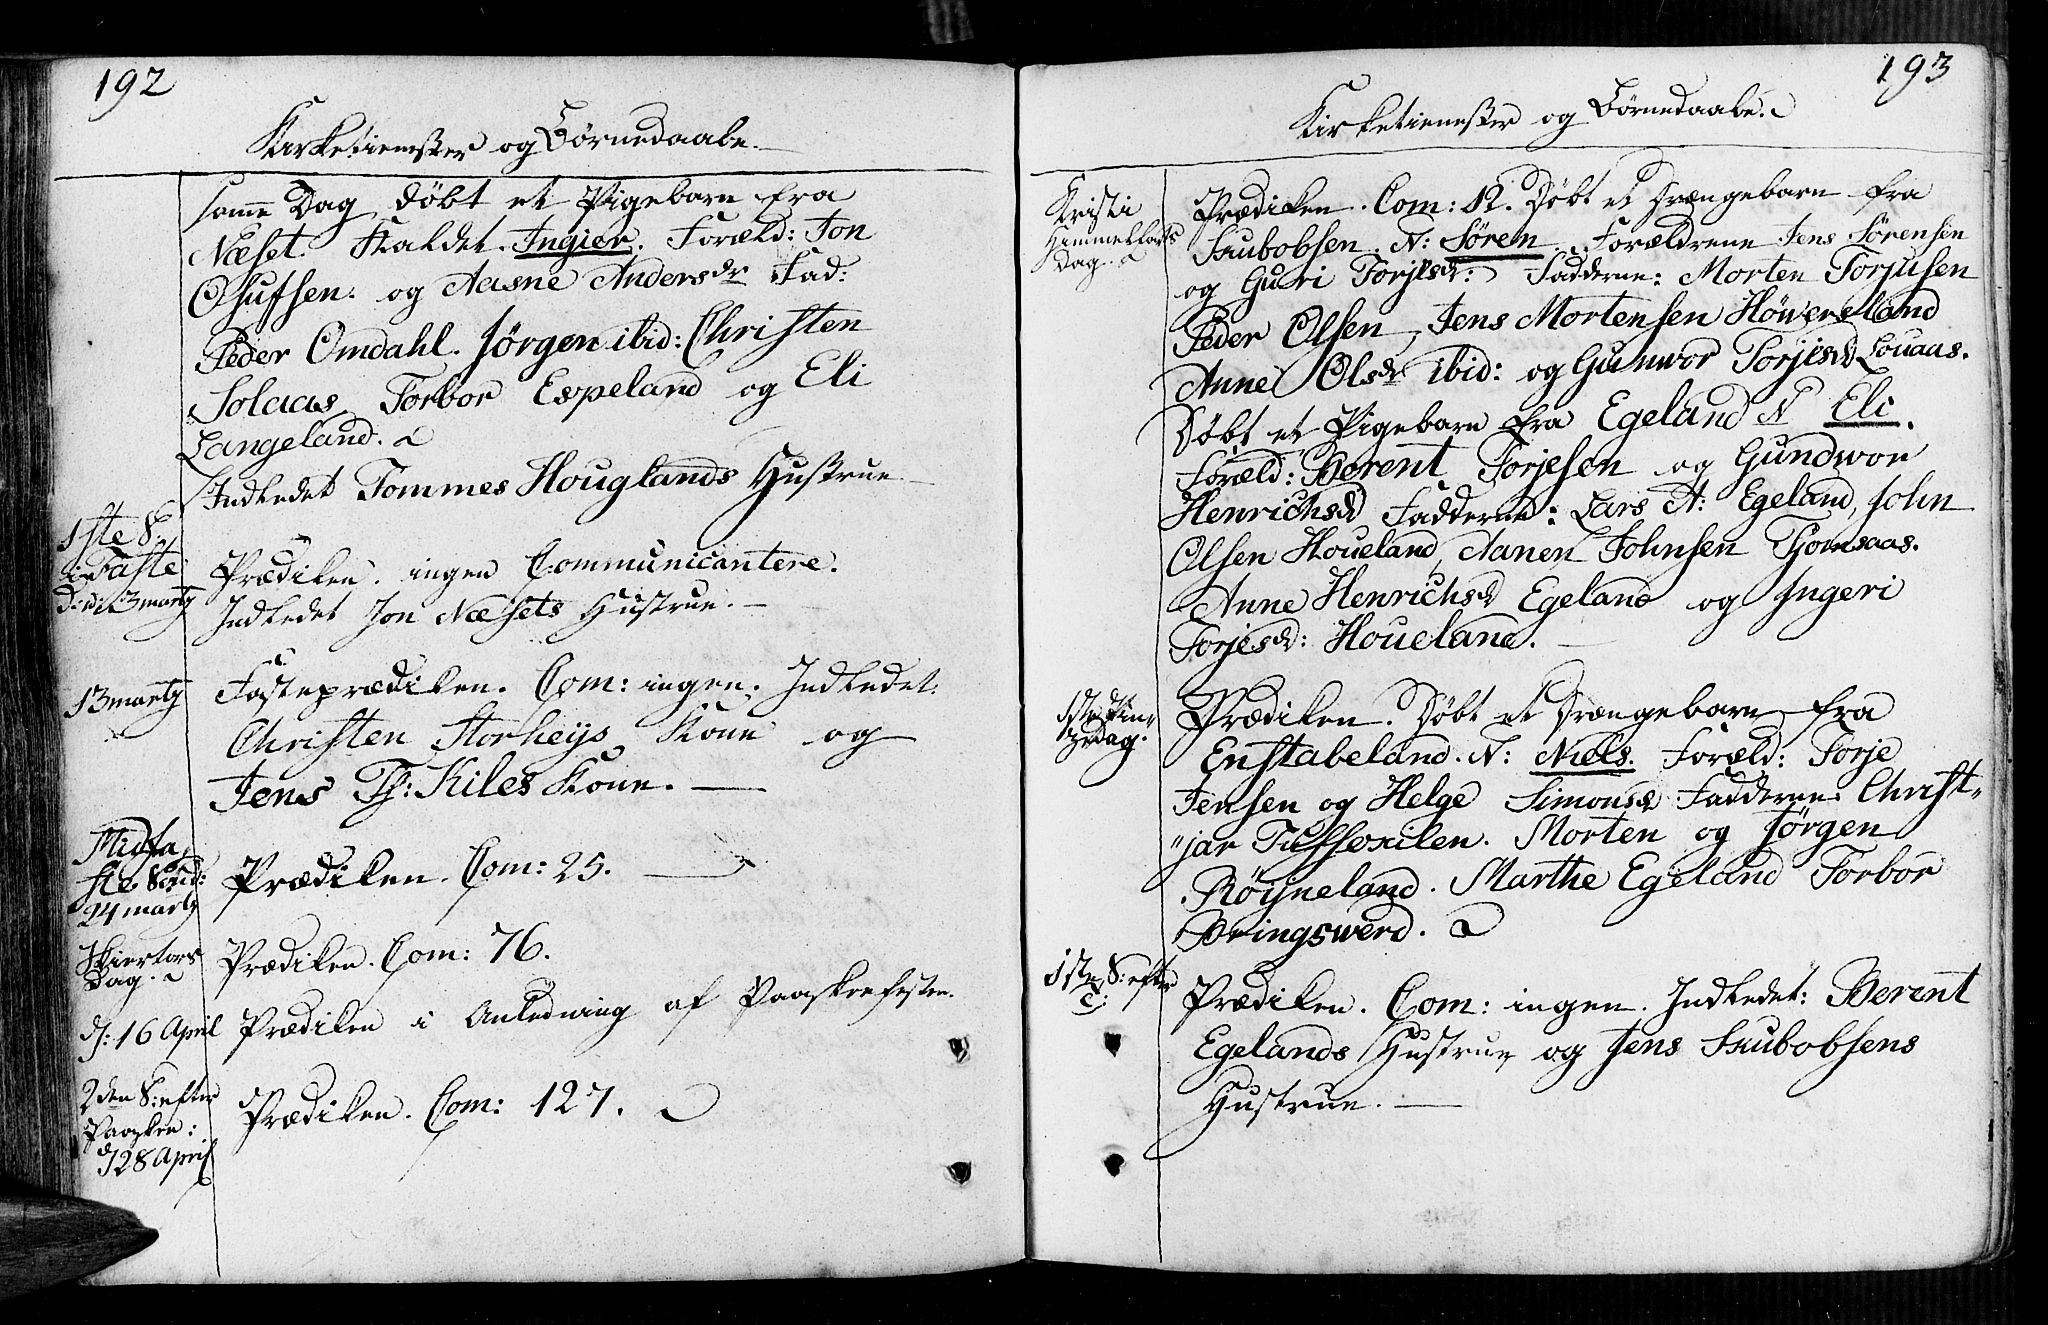 192
Kirketienester og Børnedaabe.
samme Dag døbt et Pigebarn fra
Næset. Kaldet Ingier. Foræld: Jon
Olufsen. og Aasne Andersdr Fad:
Peder Omdahl. Jørgen ibid: Christen
Solaas, Torbor Espeland og Eli
Langeland.
Indledet Tommes Houglands Hustrue
1ste S.
i Faste
Prædiken. ingen Communicantere.
Indledet Jon Næsets Hustrue.
13 martz
Fasteprædiken. Com: ingen. Indledet:
Christen Storheys Kone og
Jens Th: Kiles Kone.
Midfa
ste Sønd:
24 martz
Prædiken. Com: 25.
Skiertors
Dag.
Prædiken. Com: 76.
d: 16 April
Prædiken i Anledning af Paaskefesten.
2den S: efter
Paasken:
d 28 April
Prædiken. Com: 127.
193
Kirketienester og Børnedaabe.
Kristi
Himmelfarts
Dag.
Prædiken. Com: 12. Døbt et Drængebarn fra
N: Søren. Forældrene Jens Sørensen
og Guri Torjesd: Fadderne: Morten Torjusen
Peder Olsen, Jens Mortensen Höwersland
Anne Olsdr ibid: og Gunwor Torjesd Louaas.
Døbt et Pigebarn fra Egeland N Eli.
Foræld: Berent Torjesen og Gundwor
Henrichsd Fadderne: Lars A: Egeland, John
Olsen Houeland, Aanen Johnsen Tjomsaas.
Anne Henrichsd Egeland og Ingeri
Torjesd: Houeland.
1ste Pin-
tzedag.
Prædiken. Døbt et Drængebarn fra
Enstabeland. N: Niels. Foræld: Torje
Jensen og Helge Simonsd Fadderne: Christ-
"jar Tufsexilen. Morten og Jørgen
Röijneland. Marthe Egeland Torbor
Bringswerd.
1ste S: efter
T:
Prædiken. Com: ingen. Indledet: Berent
Egelands Hustrue og Jens Skubobsens
Hustrue.